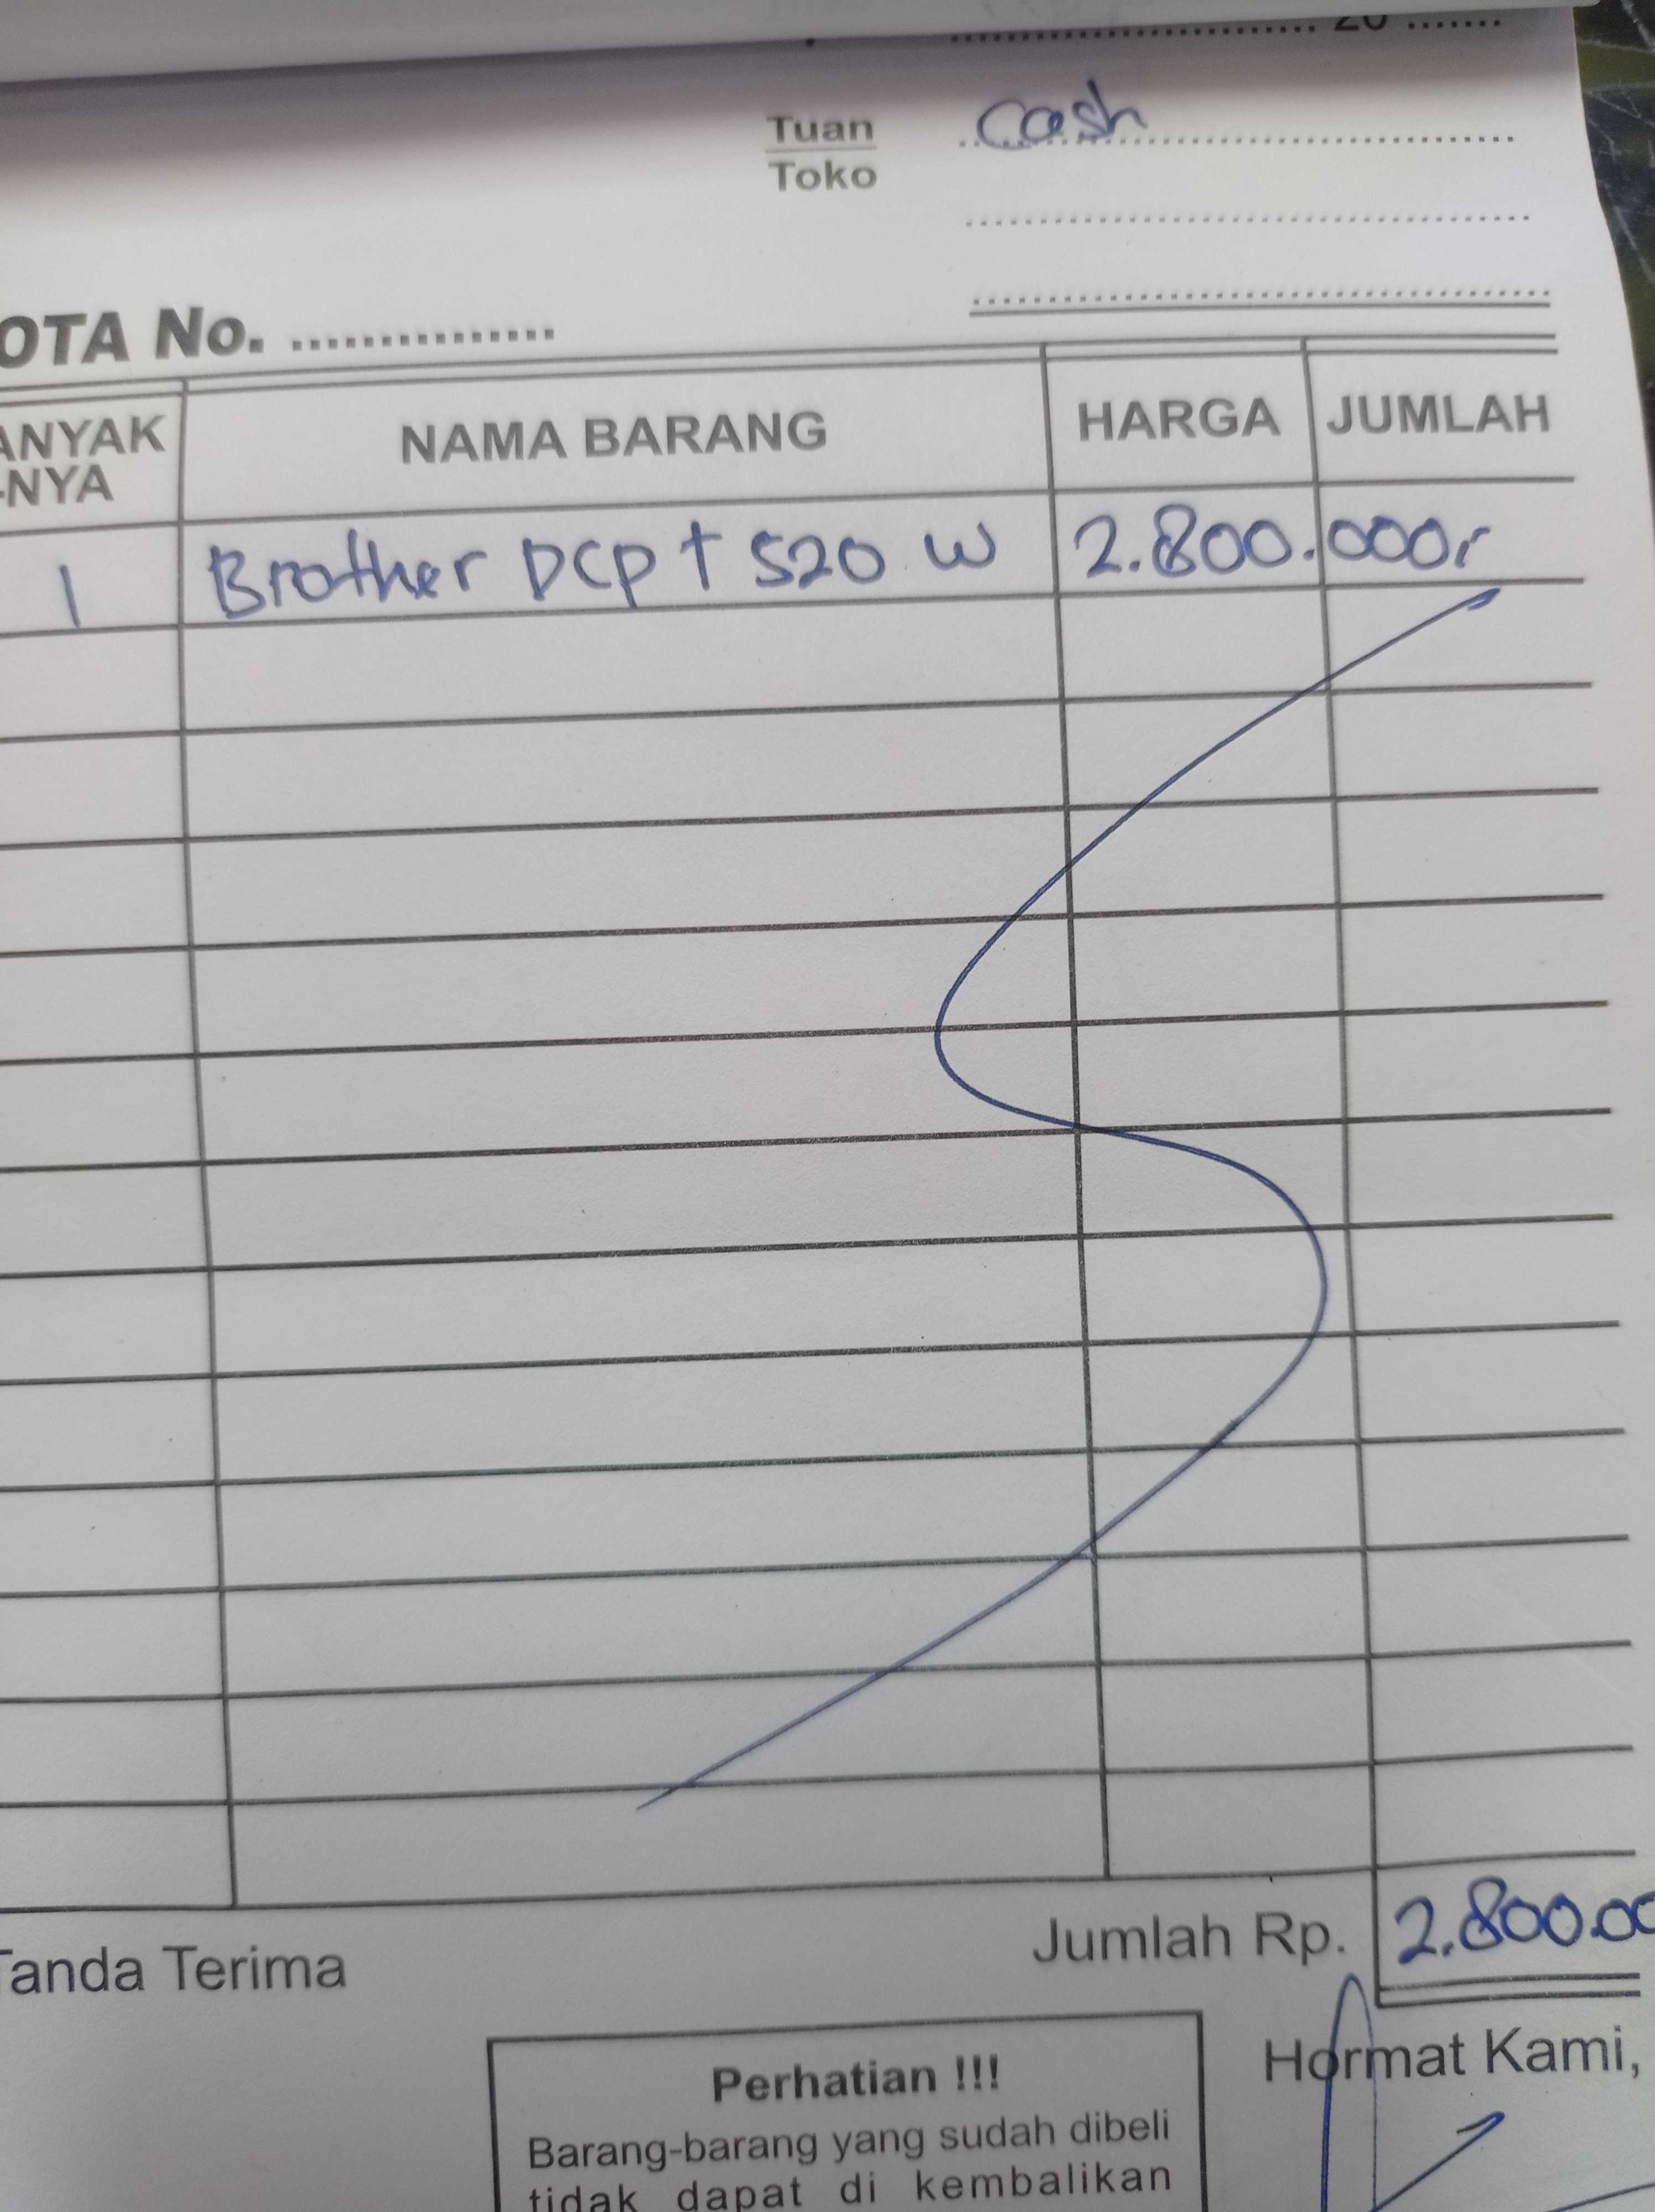 20
Tuan cash
Toko
OTA No.
ANYAK
-NYA NAMA BARANG HARGA JUMLAH
1 Brother DCP T 520 W 2.800.000,-
Jumlah Rp. 2.800.00
Tanda Terima
Hormat Kami,
Perhatian !!!
Barang-barang yang sudah dibeli
tidak dapat di kembalikan